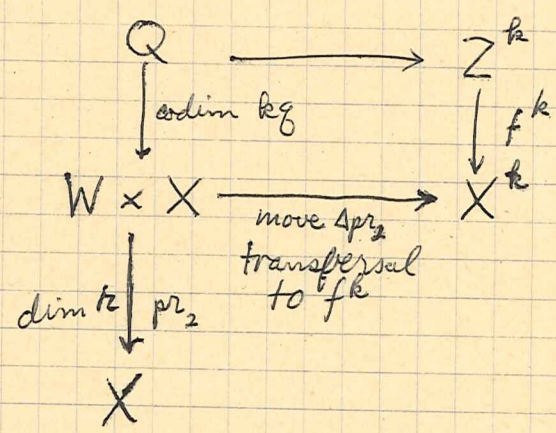 Q → Z^k
codim kq
f^k
W × X → X^k
move Δpr₂
transversal
to f^k
dim r pr₂
X